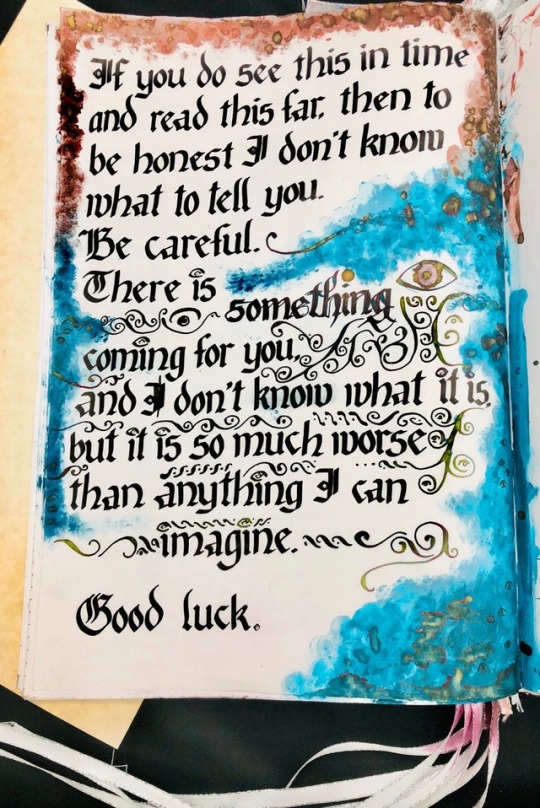 If you do see this in time
and read this far, then to
be honest I don't know
what to tell you.
Be careful.
There is
something
coming for you,
and I don't know what it is,
but it is so much worse
than anything I can
imagine.
Good luck.